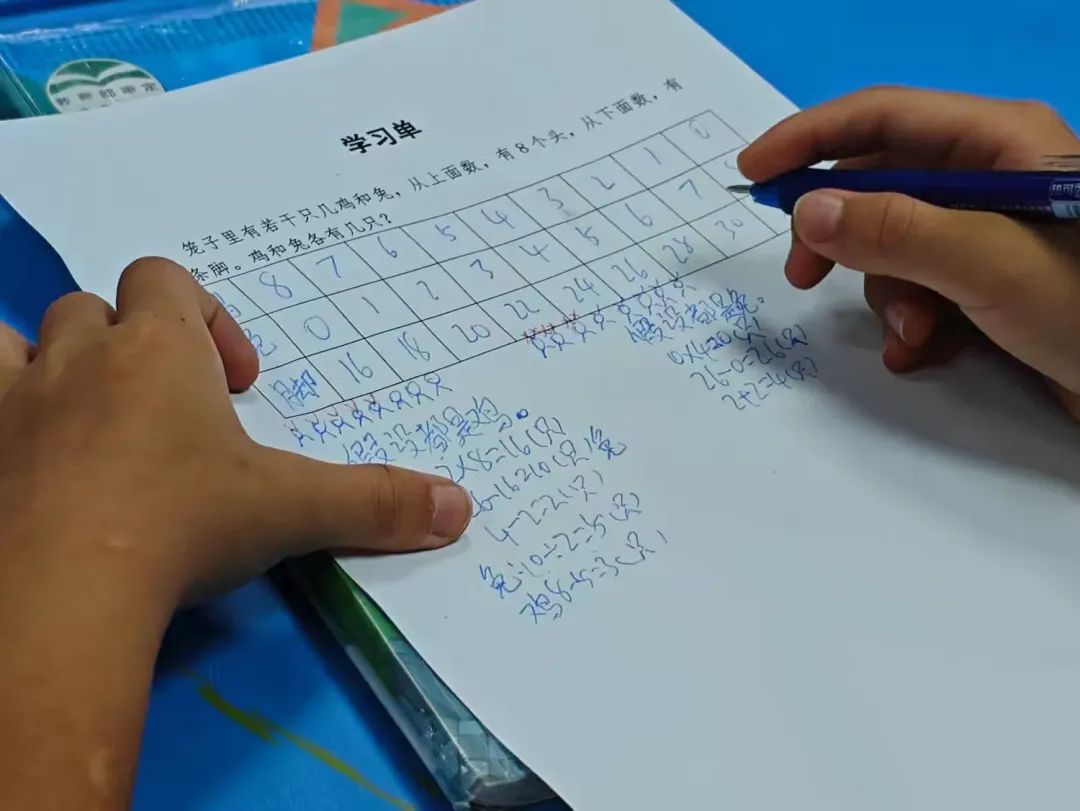 教育部审定
学习单
笼子里有若干只几鸡和兔，从上面数，有8个头，从下面数，有
条脚。鸡和兔各有几只？
8 7 6 5 4 3 2 1 0
0 1 2 3 4 5 6 7
脚 16 18 20 22 24 26 28 30
假设都是鸡。
2×8=16(只)
-16=10(只)兔
4-2=2(只)
兔:10÷2=5(只)
鸡8-5=3(只)
假设都是兔。